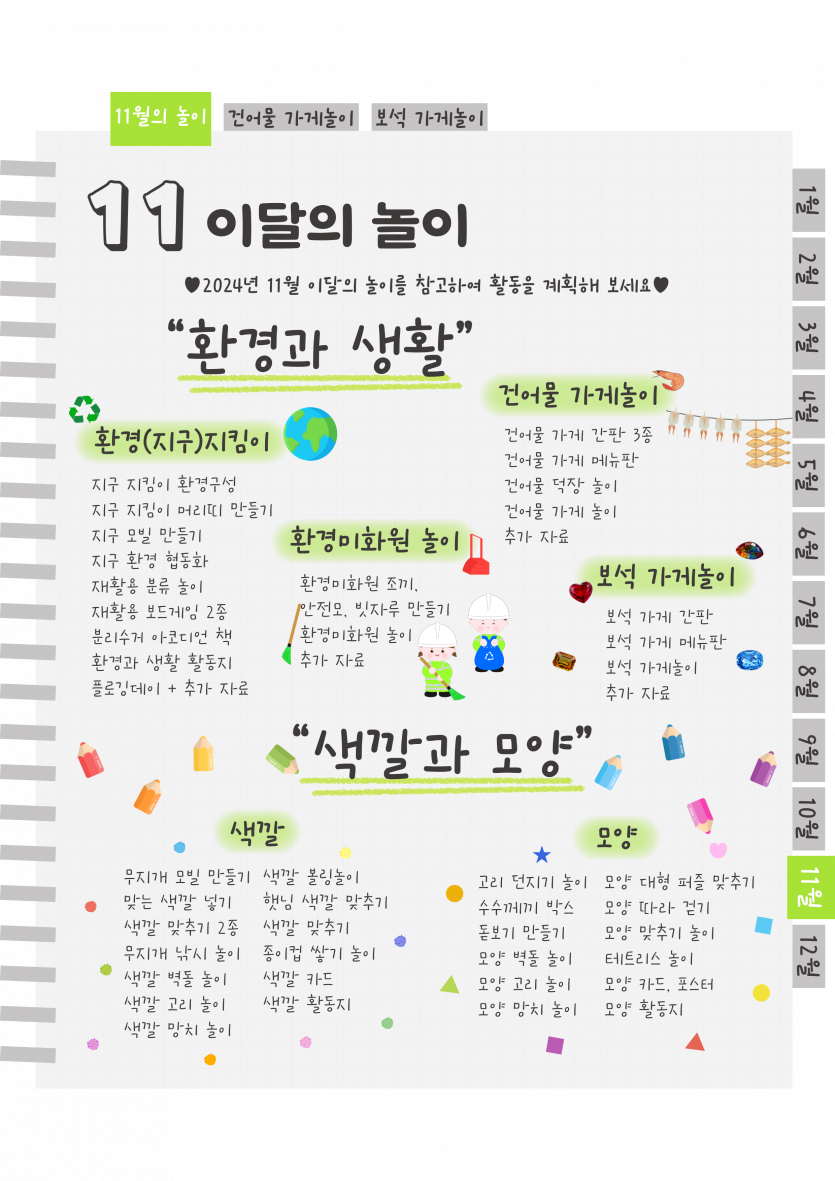 11월의 놀이
건어물 가게놀이
보석 가게놀이
11 이달의 놀이
♥2024년 11월 이달의 놀이를 참고하여 활동을 계획해 보세요♥
“환경과 생활”
환경(지구)지킴이
지구 지킴이 환경구성
지구 지킴이 머리띠 만들기
지구 모빌 만들기
지구 환경 협동화
재활용 분류 놀이
재활용 보드게임 2종
분리수거 아코디언 책
환경과 생활 활동지
플로깅데이 + 추가 자료
환경미화원 놀이
환경미화원 조끼,
안전모, 빗자루 만들기
환경미화원 놀이
추가 자료
건어물 가게놀이
건어물 가게 간판 3종
건어물 가게 메뉴판
건어물 덕장 놀이
건어물 가게 놀이
추가 자료
보석 가게놀이
보석 가게 간판
보석 가게 메뉴판
보석 가게놀이
추가 자료
“색깔과 모양”
색깔
무지개 모빌 만들기
맞는 색깔 넣기
색깔 맞추기 2종
무지개 낚시 놀이
색깔 벽돌 놀이
색깔 고리 놀이
색깔 망치 놀이
색깔 볼링놀이
햇님 색깔 맞추기
색깔 맞추기
종이컵 쌓기 놀이
색깔 카드
색깔 활동지
모양
고리 던지기 놀이
수수께끼 박스
돋보기 만들기
모양 벽돌 놀이
모양 고리 놀이
모양 망치 놀이
모양 대형 퍼즐 맞추기
모양 따라 걷기
모양 맞추기 놀이
테트리스 놀이
모양 카드, 포스터
모양 활동지
1월
2월
3월
4월
5월
6월
7월
8월
9월
10월
11월
12월